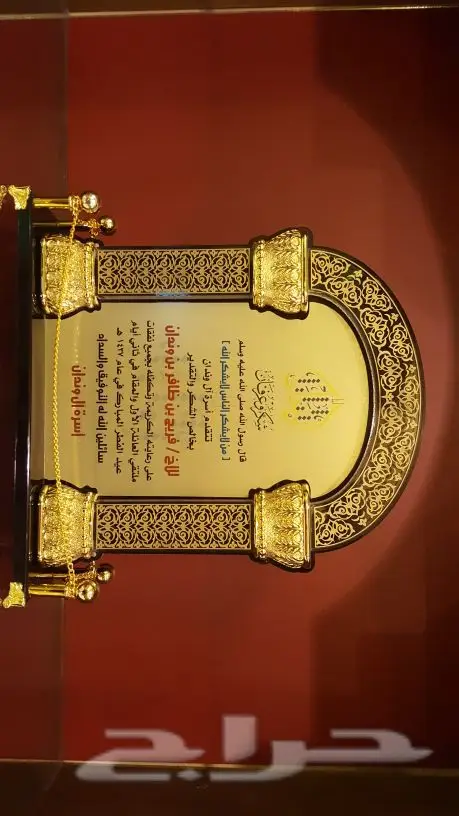 شكر وعرفان
قال رسول الله صلى الله عليه وسلم
[ من لايشكر الناس لايشكر الله ]
تتقدم أسرة آل وندان
بخالص الشكر والتقدير
للأخ / فريح بن ظافر بن وندان
على رعايته الكريمة وتكفله بجميع نفقات
ملتقى العائلة الأول والمقام في ثاني أيام
عيد الفطر المبارك في عام ١٤٣٧ هـ
سائلين الله له التوفيق والسداد
أسرة آل وندان
حراج